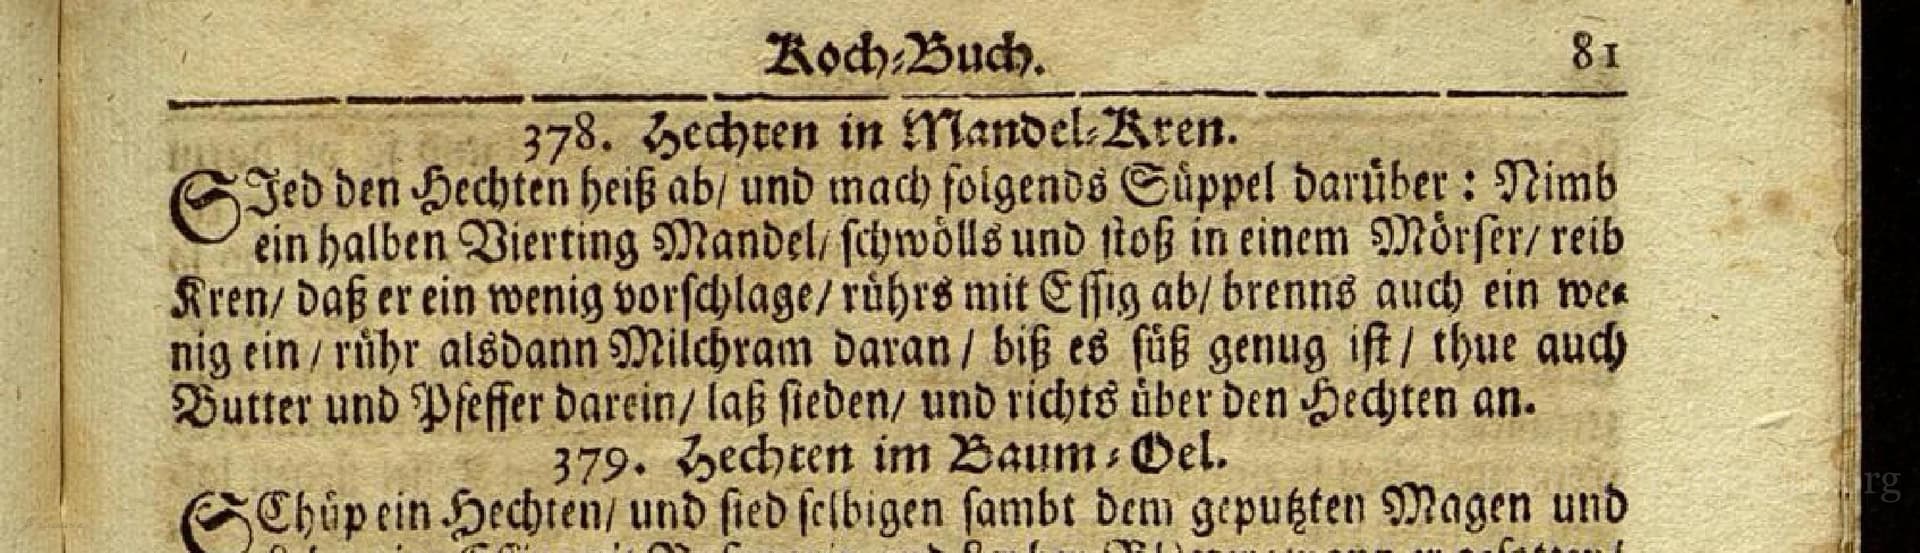 Koch-Buch. 81
378. Hechten in Mandel-Kren.
SIed den Hechten heiß ab/ und mach folgends Süppel darüber: Nimb
ein halben Vierting Mandel/ schwölls und stoß in einem Mörser/ reib
Kren/ daß er ein wenig vorschlage/ rührs mit Essig ab/ brenns auch ein we-
nig ein/ rühr alsdann Milchram daran/ biß es süß genug ist/ thue auch
Butter und Pfeffer darein/ laß sieden/ und richts über den Hechten an.
379. Hechten im Baum-Oel.
SChüp ein Hechten/ und sied selbigen sambt dem geputzten Magen und